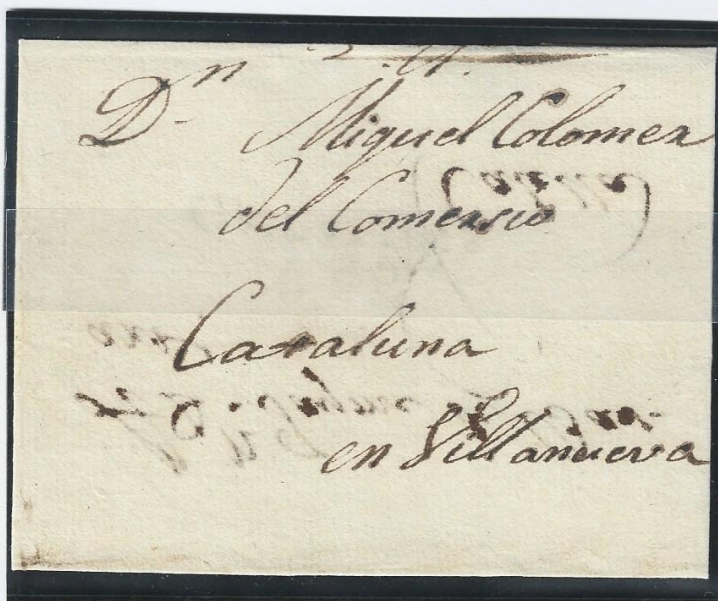 Dn Miguel Colomer
del Comersio
Cataluna
en Villanueva